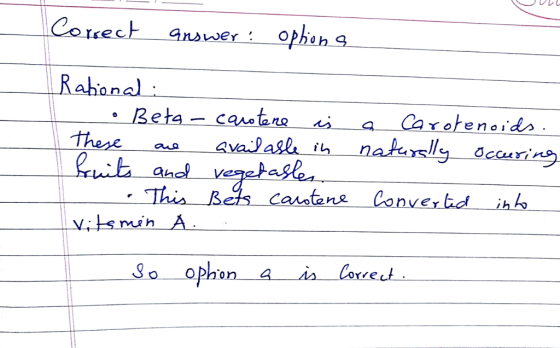 Correct answer: option a
Rational:
• Beta-carotene is a Carotenoids.
These are available in naturally occuring
fruits and vegetables.
• This Beta carotene Converted into
vitamin A.
So option a is Correct.